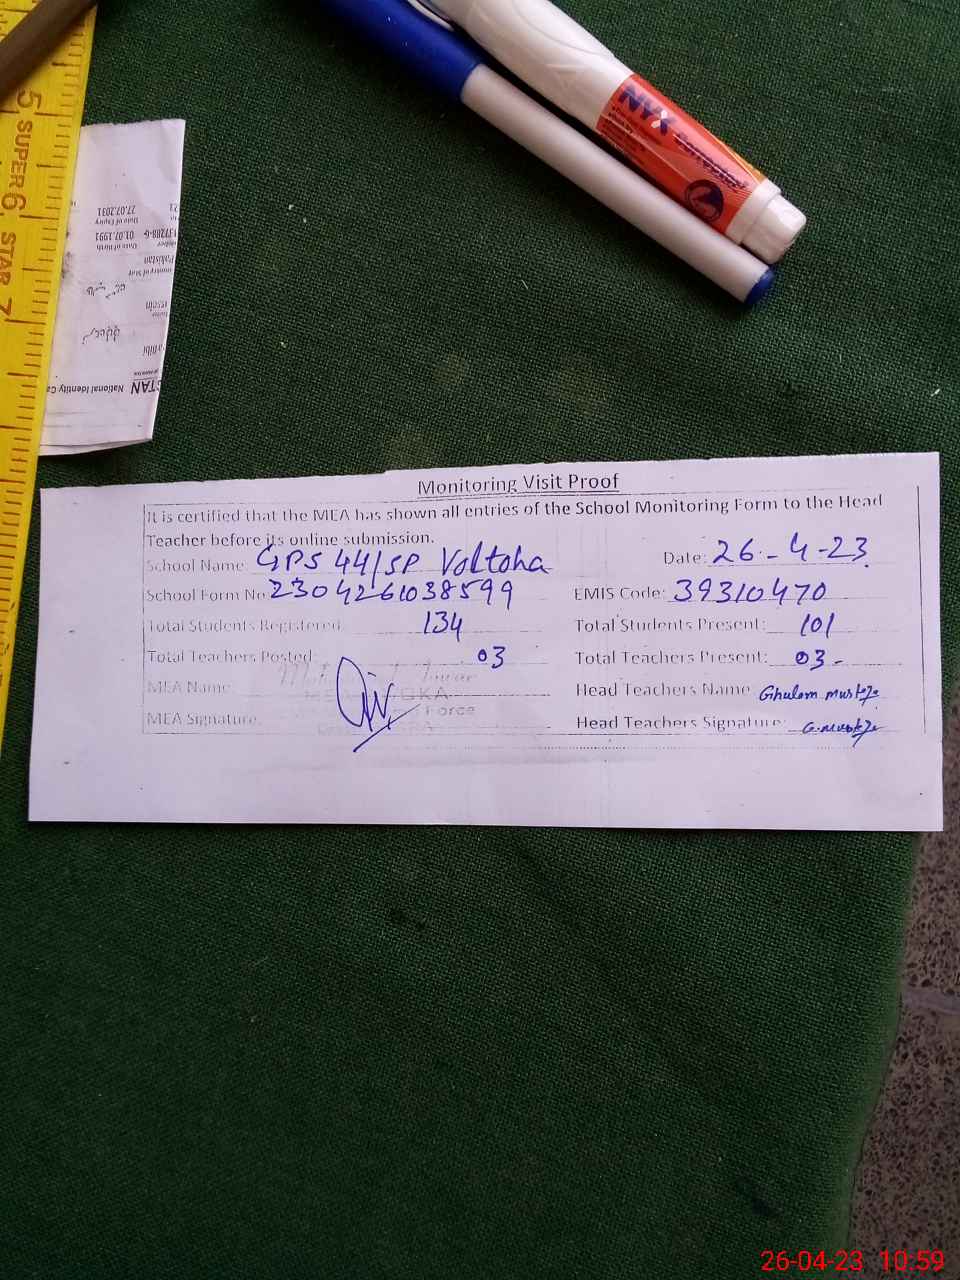 5
SUPER 6
STAR 7
NYX
27.07.2031
Date of Expiry
01.07.1991
Date of Birth
37288-6
Pakistan
National Identity Ca
STAN
Monitoring Visit Proof
It is certified that the MEA has shown all entries of the School Monitoring Form to the Head
Teacher before its online submission.
School Name: GPS 44/SP Voltoha Date: 26-4-23
School Form No 23042661038599 EMIS Code: 39310470
Total Students Registered: 134 Total Students Present: 101
Total Teachers Posted: 03 Total Teachers Present: 03-
MEA Name: Head Teachers Name: Ghulam
Force
MEA Signature: Head Teachers Signature:
26-04-23 10:59